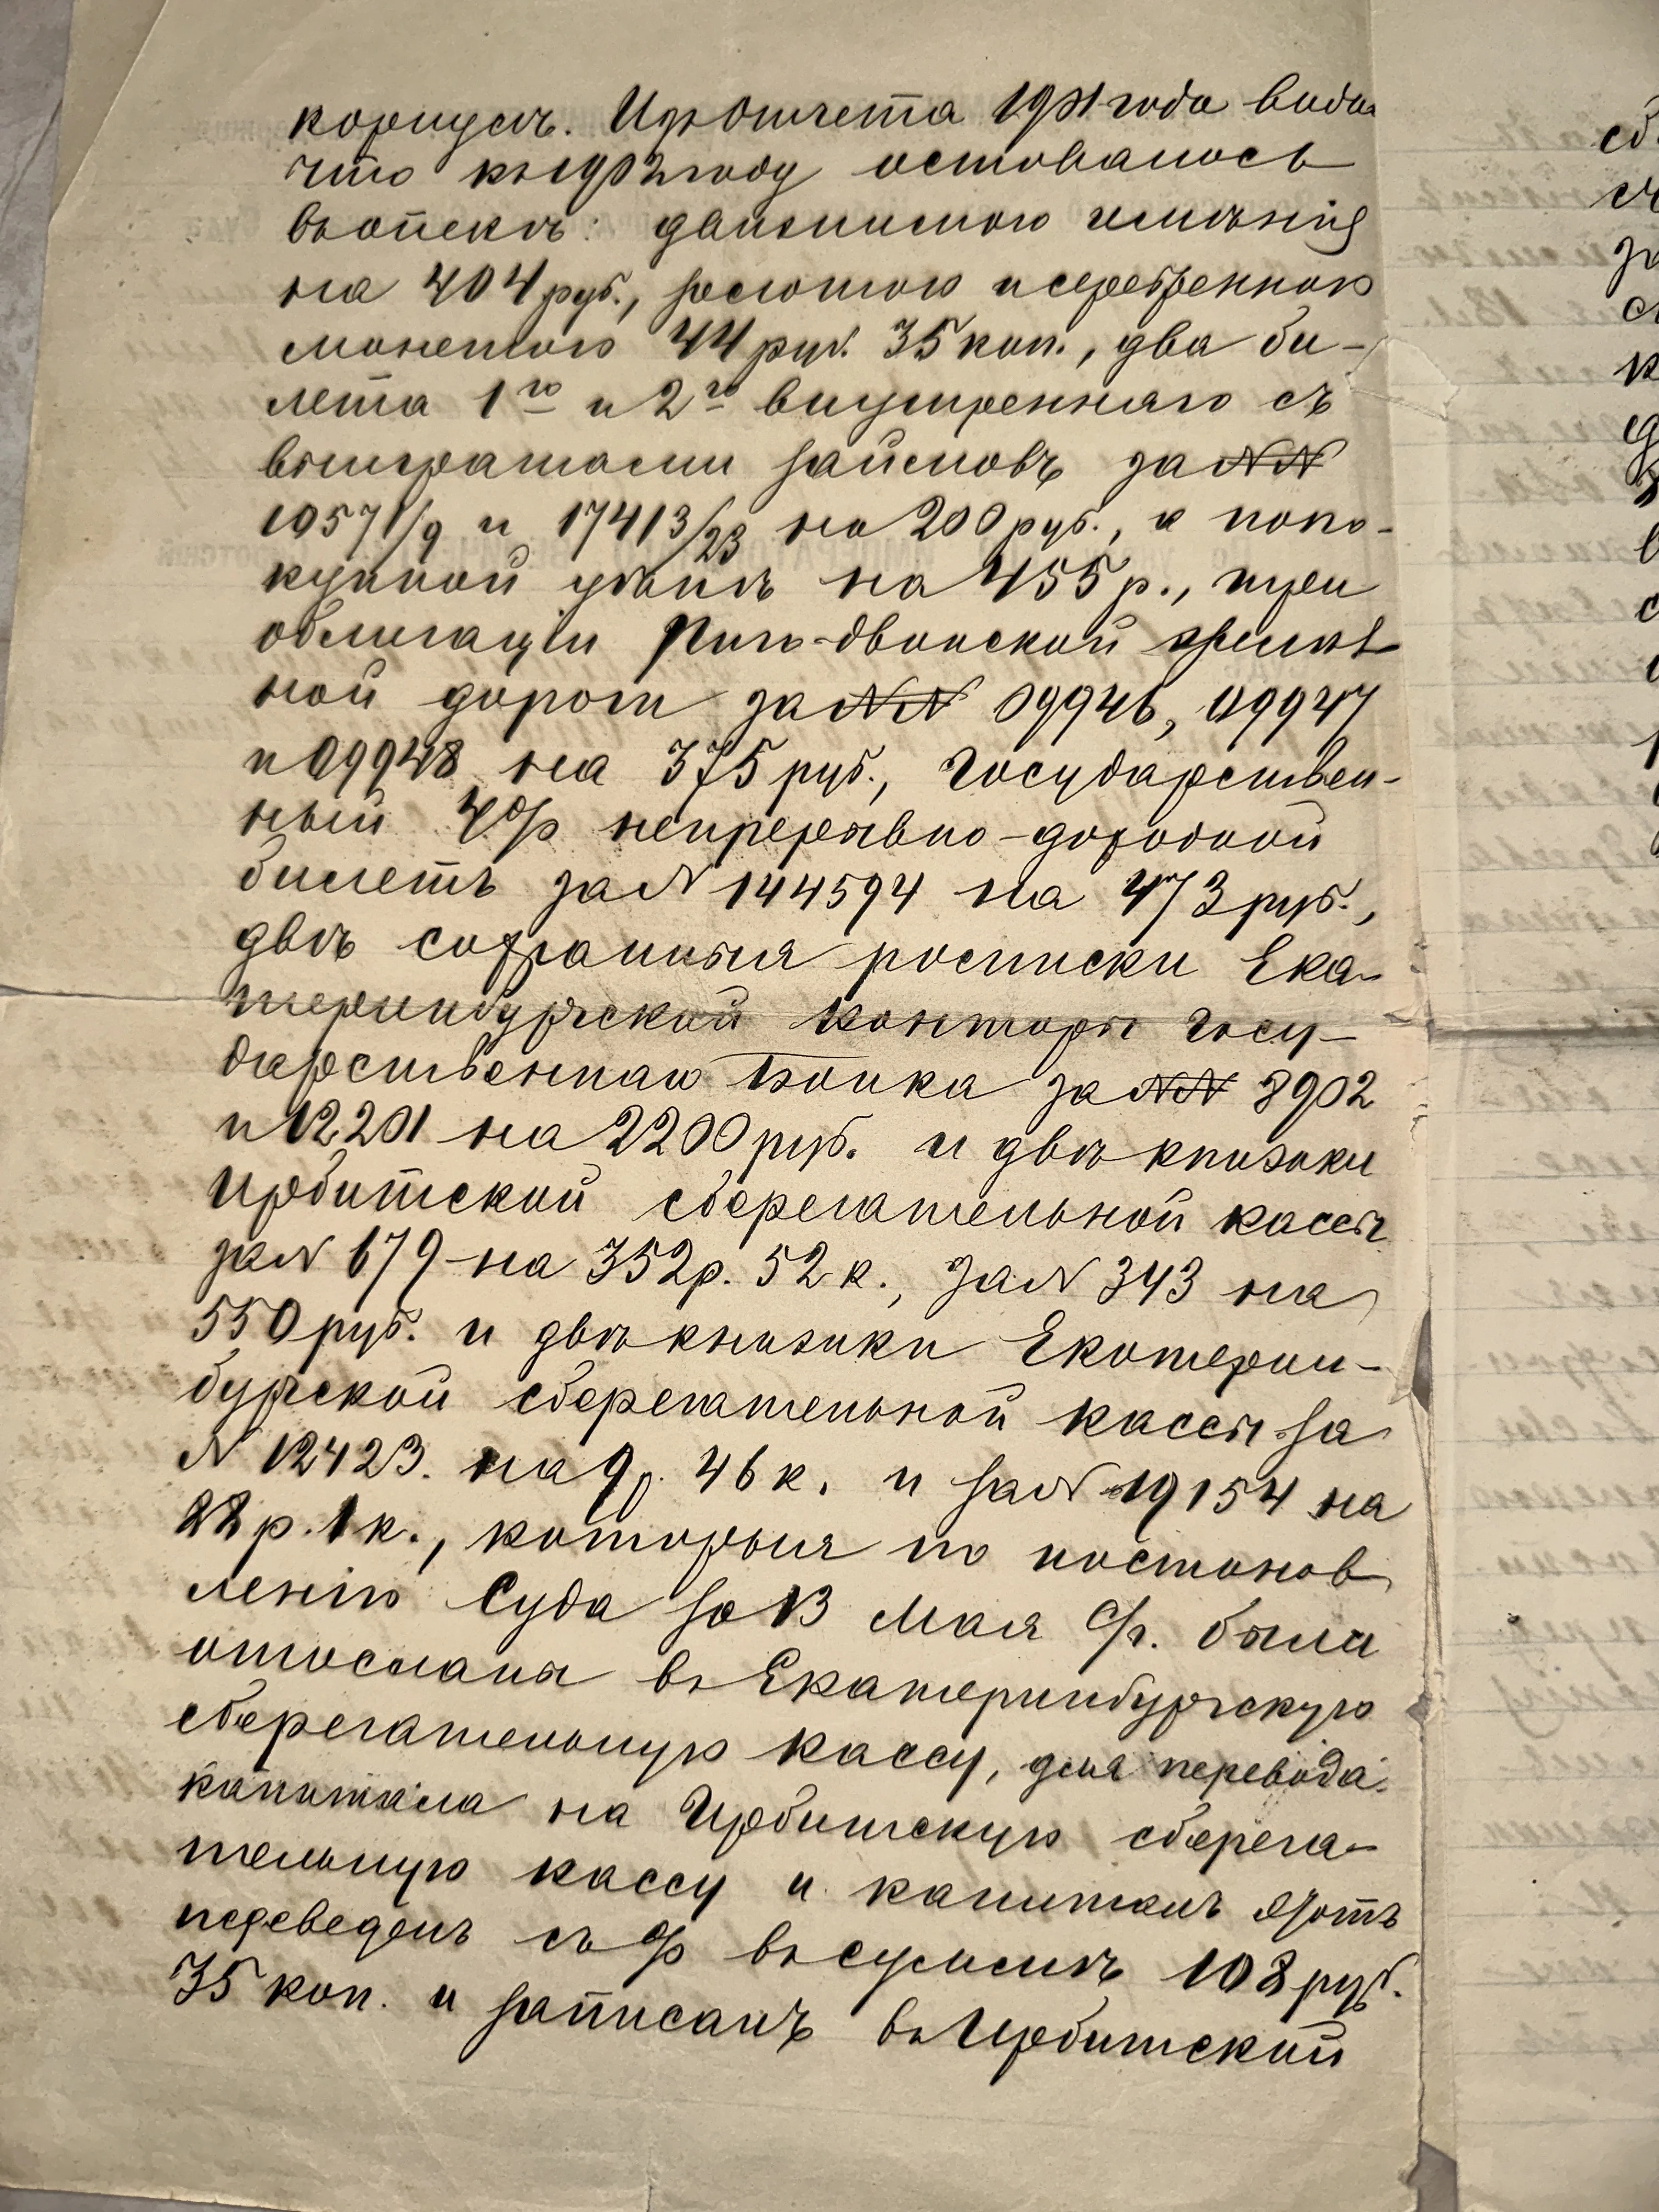 корпусѣ. Изъ отчета 1901 года видно
что къ 1902 году оставалось
въ опекѣ: движимаго имѣнія
на 404 руб., золотою и серебренною
монетою 44 руб. 35 коп., два би-
лета 1го и 2го внутренняго съ
выигрышами займовъ за №№
10571/9 и 17413/23 на 200 руб., а по по-
купной цѣнѣ на 455 р., три
облигаціи Риго-Двинской желѣз
ной дороги за №№ 09946, 09947
и 09948 на 375 руб., Государствен-
ный 4% непрерывно-доходной
билетъ за № 144594 на 473 руб.,
двѣ сохранныя росписки Ека-
теринбургской Конторы Госу-
дарственнаго Банка за №№ 8902
и 12201 на 2200 руб. и двѣ книжки
Ирбитской сберегательной кассы
за № 679 на 352 р. 52 к., за № 343 на
550 руб. и двѣ книжки Екатерин-
бургской сберегательной кассы за
№ 12423. на 9 р. 46 к. и за № 19154 на
22 р. 1 к., которыя по постанов
ленію Суда за 13 Мая с/г. были
отосланы въ Екатеринбургскую
сберегательную кассу, для перевода
капитала на Ирбитскую сберега-
тельную кассу и капиталъ этотъ
переведенъ съ % въ суммѣ 108 руб.
35 коп. и записанъ въ Ирбитской